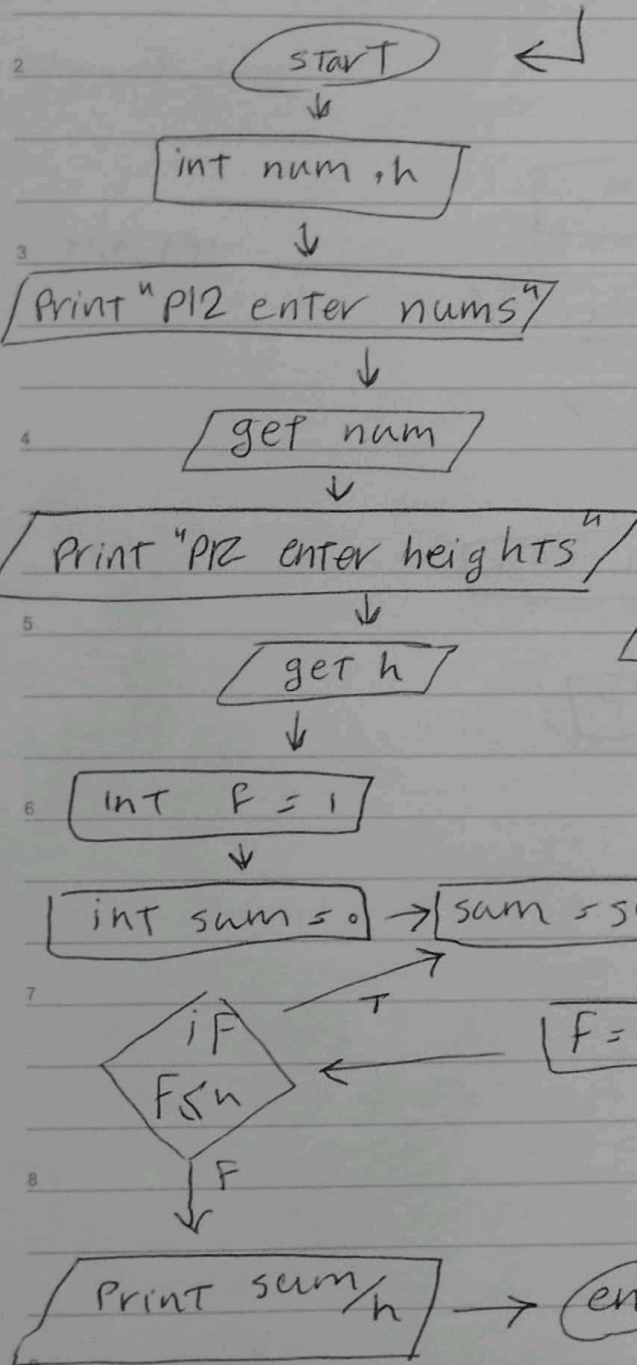 2
start
int num , h
3
Print "Plz enter nums"
4
get num
Print "Plz enter heights"
5
get h
6
int F = 1
int sum = 0
sum = s
7
if
F≤n
T
F =
F
8
Print sum/n
en